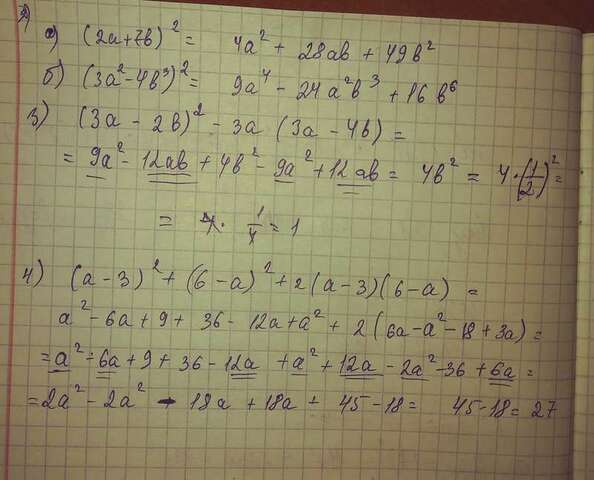 2) а) (2a+7b)² = 4a² + 28ab + 49b²
б) (3a²-4b³)² = 9a⁴ - 24a²b³ + 16b⁶
3) (3a - 2b)² - 3a (3a - 4b) =
= 9a² - 12ab + 4b² - 9a² + 12ab = 4b² = 4·(1/2)² =
= 4 · 1/4 = 1
4) (a-3)² + (6-a)² + 2(a-3)(6-a) =
a² - 6a + 9 + 36 - 12a + a² + 2(6a-a²-18+3a) =
= a² - 6a + 9 + 36 - 12a + a² + 12a - 2a² - 36 + 6a =
= 2a² - 2a² - 18a + 18a + 45 - 18 = 45-18 = 27